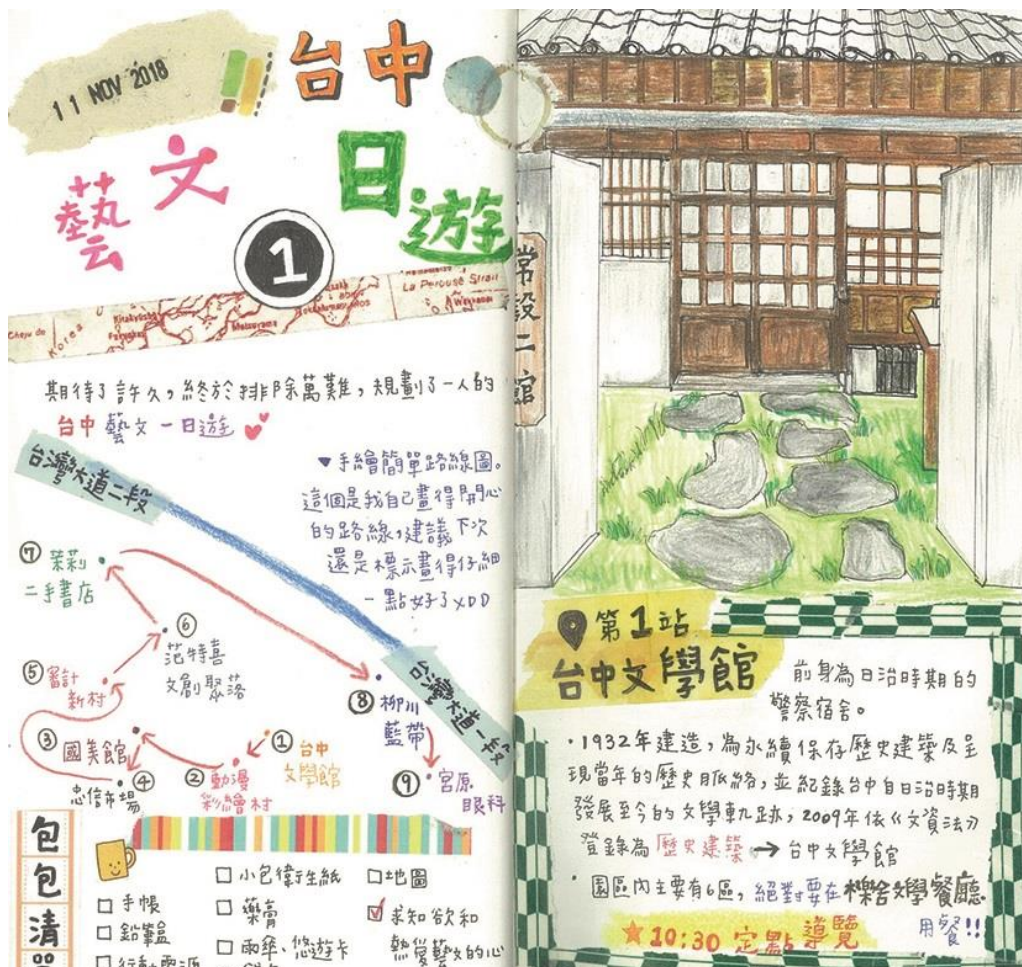 11 NOV 2018
台中
藝文
日遊
1
Korea
Kitakyushu
Matsuyama
La Perouse Strait
期待了許久,終於排除萬難,規劃了一人的
台中 藝文 一日遊
台灣大道二段
▼手繪簡單路線圖。
這個是我自己畫得開心
的路線,建議下次
還是標示畫得仔細
一點好了XDD
⑦ 茉莉
二手書店
⑥
范特喜
文創聚落
⑤ 審計
新村
③ 國美館
④
忠信市場
② 動漫
彩繪村
① 台中
文學館
⑧ 柳川
藍帶
台灣大道一段
⑨ 宮原
眼科
包包清單
□ 手帳
□ 鉛筆盒
□ 行動電源
□ 小包衛生紙
□ 藥膏
□ 雨傘、悠遊卡
□ 地圖
☑ 求知慾和
熱愛藝文的心
常設二館
第1站
台中文學館
前身為日治時期的
警察宿舍。
·1932年建造,為永續保存歷史建築及呈
現當年的歷史脈絡,並紀錄台中自日治時期
發展至今的文學軌跡,2009年依《文資法》
登錄為 歷史建築 → 台中文學館
·園區內主要有6區,絕對要在櫟舍文學餐廳
用餐!!
★10:30 定點導覽